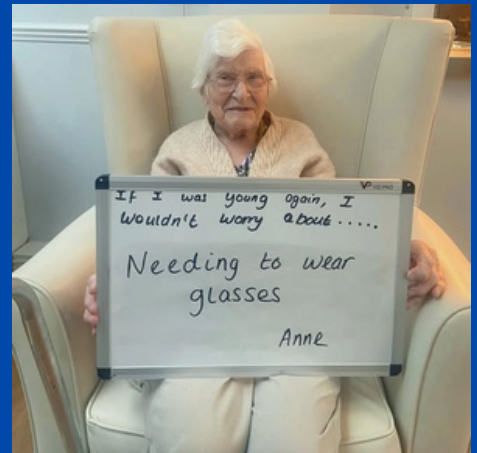 VIZ-PRO
If I was young again, I
wouldn't worry about.....
Needing to wear
glasses
Anne